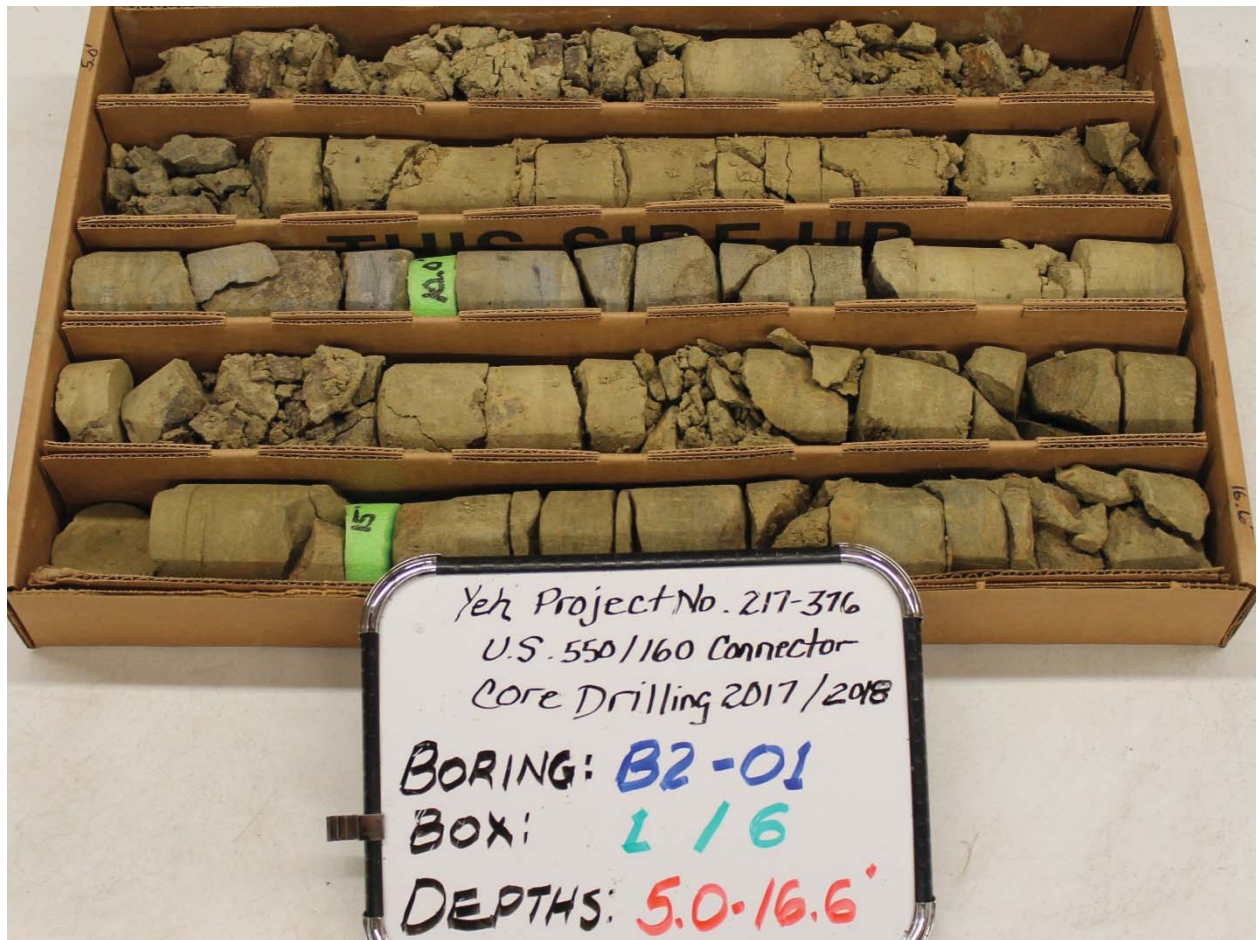 5.0'
THIS SIDE UP
15'
16.6
Yeh Project No. 217-376
U.S. 550/160 Connector
Core Drilling 2017/2018
BORING: B2-01
BOX: 1 / 6
DEPTHS: 5.0-16.6'